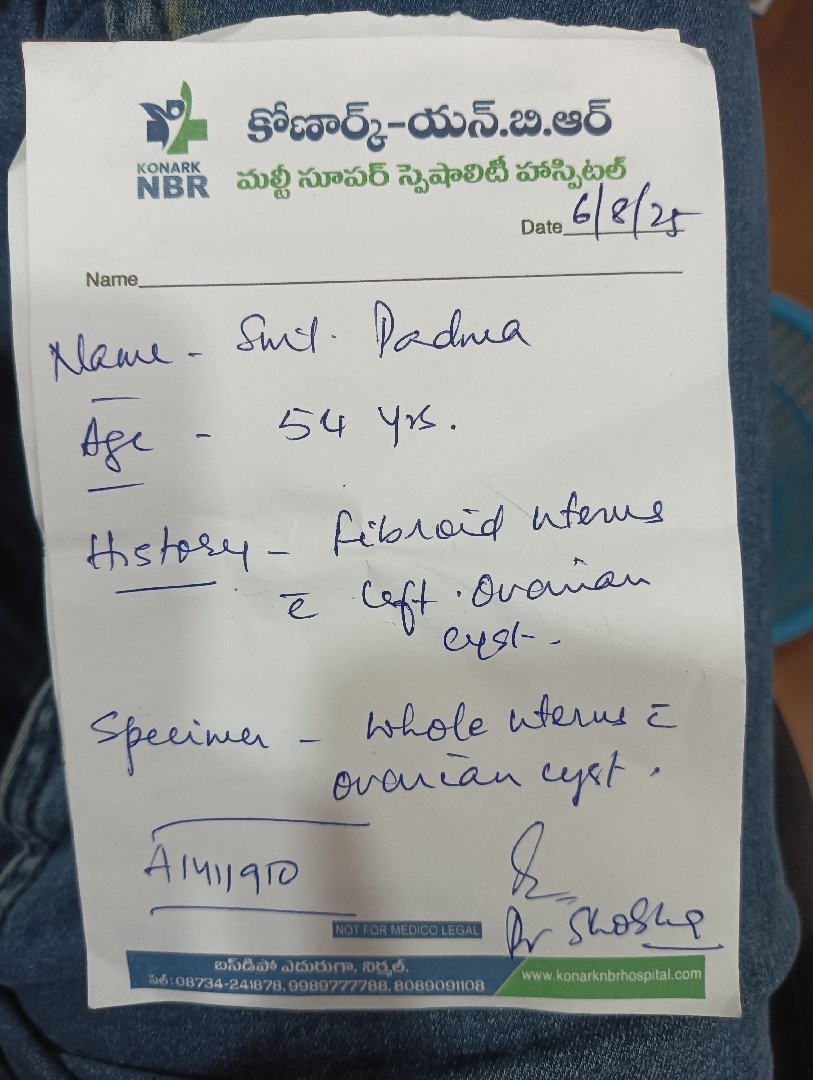 KONARK
NBR
కోణార్క్-యన్.బి.ఆర్
మల్టీ సూపర్ స్పెషాలిటీ హాస్పిటల్
Date 6/8/25
Name
Name - Smt. Padma
Age - 54 yrs.
History - fibroid uterus
c̄ left ovarian
cyst.
Specimen - whole uterus c̄
ovarian cyst.
A1411910
Dr
NOT FOR MEDICO LEGAL
బస్‌డిపో ఎదురుగా, నిర్మల్.
సెల్: 08734-241878, 9989777788, 8089091108
www.konarknbrhospital.com